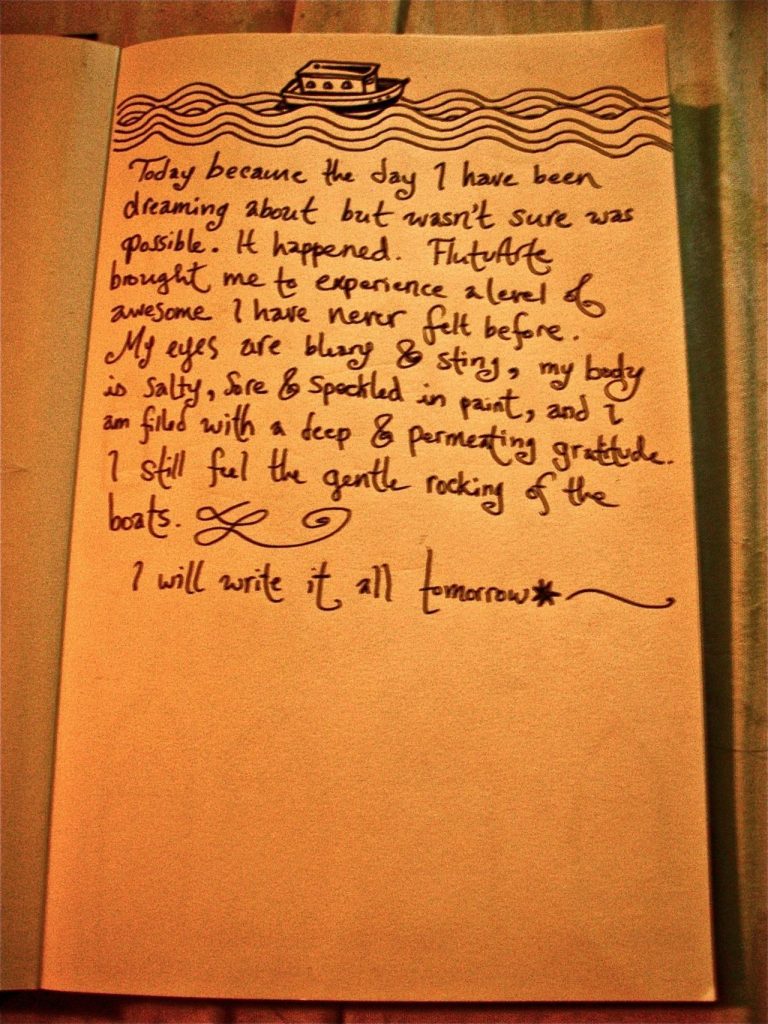 Today became the day I have been
dreaming about but wasn't sure was
possible. It happened. FlutuArte
brought me to experience a level of
awesome I have never felt before.
My eyes are bleary & sting, my body
is salty, sore & speckled in paint, and I
am filled with a deep & permeating gratitude.
I still feel the gentle rocking of the
boats.
I will write it all tomorrow*